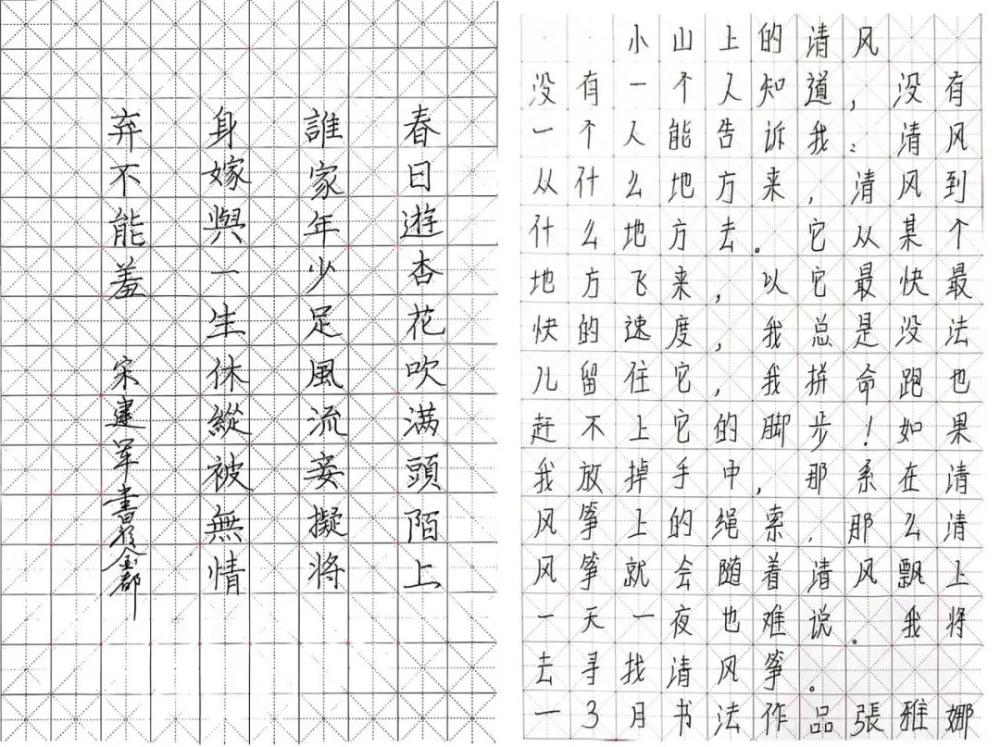 春日遊杏花吹满頭陌上
誰家年少足風流妾擬將
身嫁與一生休縱被無情
弃不能羞
宋建军書於金都
小山上的清风
没有一个人知道，没有
一个人能告诉我：清风
从什么地方来，清风到
什么地方去。它从某个
地方飞来，以它最快最
快的速度，我总是没法
儿留住它，我拼命跑也
赶不上它的脚步！如果
我放掉手中，那系在清
风筝上的绳索，那么清
风筝就会随着清风飘上
一天一夜也难说。我将
去寻找清风筝。
一3月书法作品張雅娜